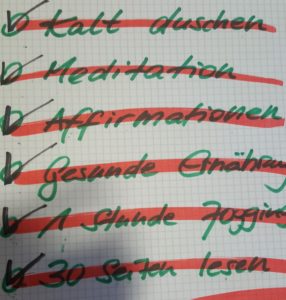 Kalt duschen
Meditation
Affirmationen
Gesunde Ernährung
1 Stunde Jogging
30 Seiten lesen